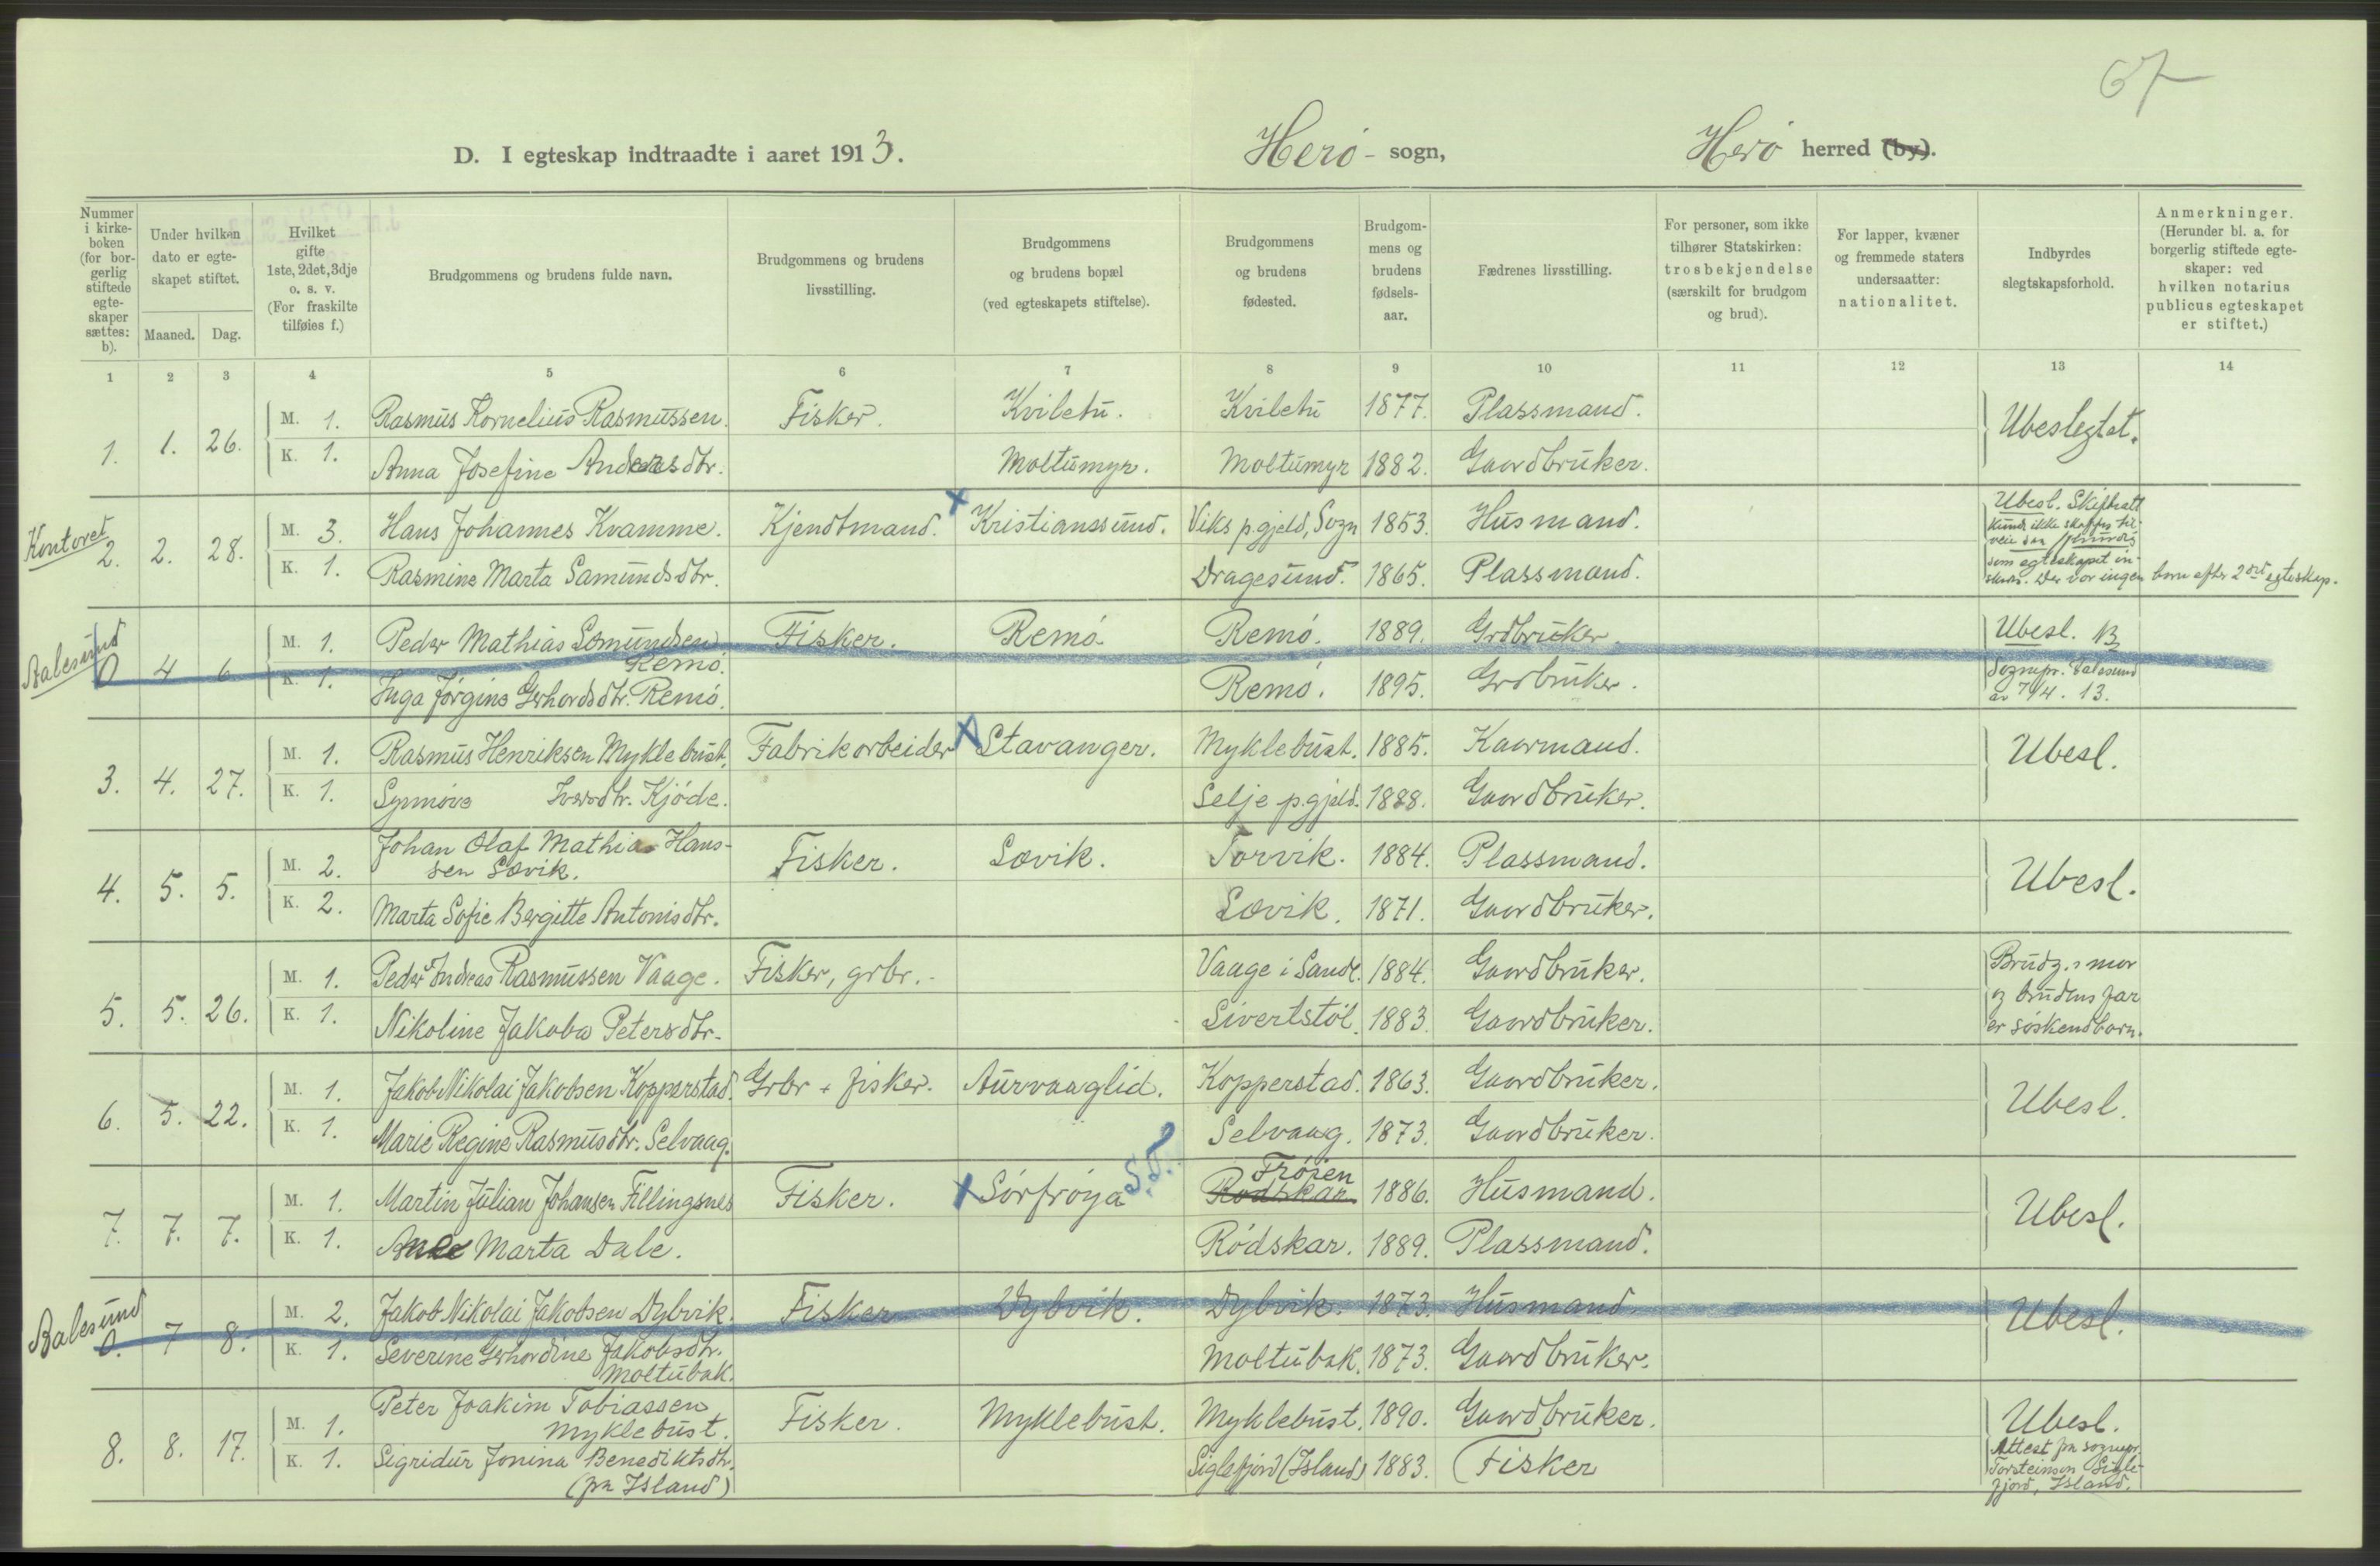 67
D. I egteskap indtraadte i aaret 1913. Herö - sogn, Herö herred (by).
Nummer i kirke-boken (for bor-gerlig stiftede egte-skaper sættes: b).
Under hvilken dato er egte-skapet stiftet.
Maaned. Dag.
Hvilket gifte 1ste, 2det, 3dje o. s. v. (For fraskilte tilføies f.)
Brudgommens og brudens fulde navn.
Brudgommens og brudens livsstilling.
Brudgommens og brudens bopæl (ved egteskapets stiftelse).
Brudgommens og brudens fødested.
Brudgom-mens og brudens fødsels-aar.
Fædrenes livsstilling.
For personer, som ikke tilhører Statskirken: trosbekjendelse (særskilt for brudgom og brud).
For lapper, kvæner og fremmede staters undersaatter: nationalitet.
Indbyrdes slegtskapsforhold.
Anmerkninger. (Herunder bl. a. for borgerlig stiftede egte-skaper: ved hvilken notarius publicus egteskapet er stiftet.)
1 2 3 4 5 6 7 8 9 10 11 12 13 14
1. 1. 26. M. 1. Rasmus Kornelius Rasmussen. Fisker. Kviletu. Kviletu 1877. Plassmand. Ubeslegtet.
K. 1. Anna Josefine Andersdtr. Moltumyr. Moltumyr 1882. Gaardbruker.
Kontoret
2. 2. 28. M. 3. Hans Johannes Kvamme. Kjendtmand. x Kristianssund. Viks p.gjeld, Sogn 1853. Husmand. Ubesl. Skifteatt
kunde ikke skaffes til-
veie
K. 1. Rasmine Marta Samundsdtr. Dragesund. 1865. Plassmand.
som egteskapet in-
Der var ingen barn efter 2det egteskap.
Aalesund
0 4 6 M. 1. Peder Mathias Somundsen
Remö. Fisker. Remö Remö. 1889. Grdbruker. Ubesl.
K. 1. Inga Jörgine Gerhardsdtr. Remö. Remö. 1895. Grdbruker.
Sognepr. Aalesund
av 7/4. 13.
3. 4. 27. M. 1. Rasmus Henriksen Myklebust. Fabrikarbeider x Stavanger. Myklebust. 1885. Kaarmand. Ubesl.
K. 1. Synnöve Iversdtr. Kjöde. Selje p.gjeld. 1888. Gaardbruker.
4. 5. 5. M. 2. Johan Olaf Mathias Han-
sen Sævik. Fisker. Sævik. Torvik. 1884. Plassmand. Ubesl.
K. 2. Marta Sofie Bergitte Antonisdtr. Sævik. 1871. Gaardbruker.
5. 5. 26. M. 1. Peder Andreas Rasmussen Vaage. Fisker, grbr. - Vaage i Sande. 1884. Gaardbruker. Brudg.s mor
og brudens far
er söskendbarn.
K. 1. Nikoline Jakoba Petersdtr. Sivertstöl. 1883. Gaardbruker.
6. 5. 22. M. 1. Jakob Nikolai Jakobsen Kopperstad. Grbr + fisker. Aurvaaglid. Kopperstad. 1863. Gaardbruker. Ubesl.
K. 1. Marie Regine Rasmusdtr. Selvaag. Selvaag. 1873. Gaardbruker.
7. 7. 7. M. 1. Martin Julian Johansen Fillingsnes Fisker. x Sörfröya S.T. Fröien
Rödskar 1886. Husmand. Ubesl.
K. 1. Marta Dale. Rödskar. 1889. Plassmand.
Aalesund
0. 7 8. M. 2. Jakob Nikolai Jakobsen Dybvik. Fisker Dybvik. Dybvik. 1873. Husmand Ubesl.
K. 1. Severine Gerhardine Jakobsdtr.
Moltubak. Moltubak. 1873. Gaardbruker.
8. 8. 17. M. 1. Peter Joakim Tobiassen
Myklebust. Fisker. Myklebust. Myklebust. 1890. Gaardbruker. Ubesl.
K. 1. Sigridur Jonina Benediktsdtr.
(fra Island) Siglefjord (Island) 1883. Fisker
Attest fra sognepr.
Torsteinson Sigle-
fjord, Island.